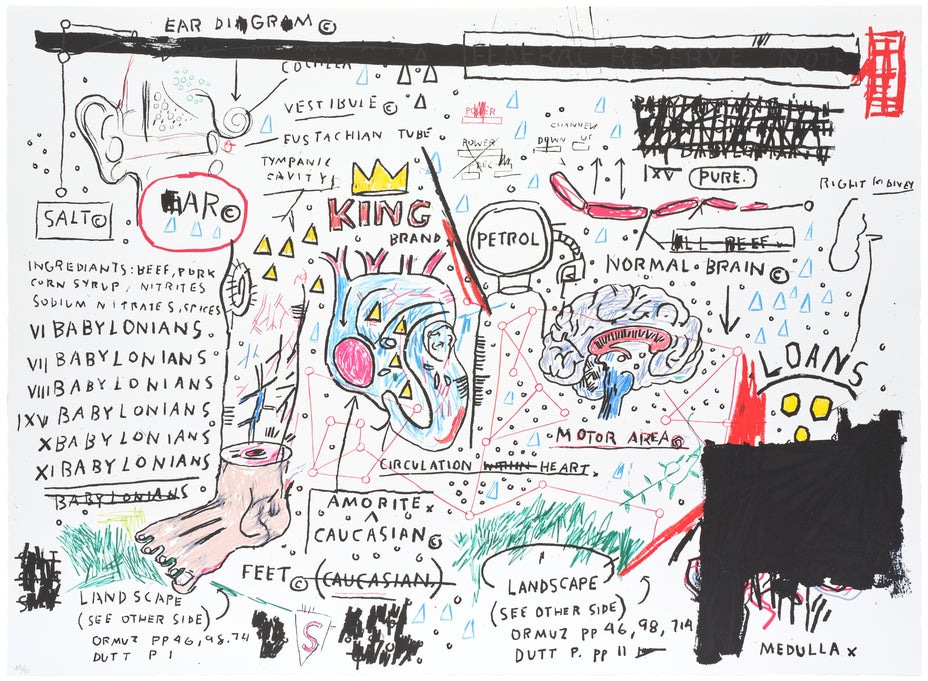 EAR DIAGRAM©
FEDERAL RESERVE NOTE
COCHLEA
VESTIBULE ©
EUSTACHIAN TUBE
TYMPANIC
CAVITY
SALT©
EAR©
POWER
POWER
REC
CHANNEL
DOWN UP
IXV PURE.
RIGHT KIDNEY
KING
BRAND
PETROL
ALL BEEF
NORMAL BRAIN ©
INGREDIANTS: BEEF, PORK
CORN SYRUP, NITRITES
SODIUM NITRATES, SPICES
VI BABYLONIANS.
VII BABYLONIANS
VIII BABYLONIANS
IXV BABYLONIANS
X BABYLONIANS
XI BABYLONIANS
BABYLONIANS
LOANS
MOTOR AREA©
CIRCULATION WITHIN HEART.
AMORITE x
CAUCASIAN©
FEET© (CAUCASIAN.)
LANDSCAPE
(SEE OTHER SIDE)
ORMUZ PP 46, 98, 714
DUTT P 1
S
LANDSCAPE
(SEE OTHER SIDE)
ORMUZ PP 46, 98, 714
DUTT P. PP 11
MEDULLA x